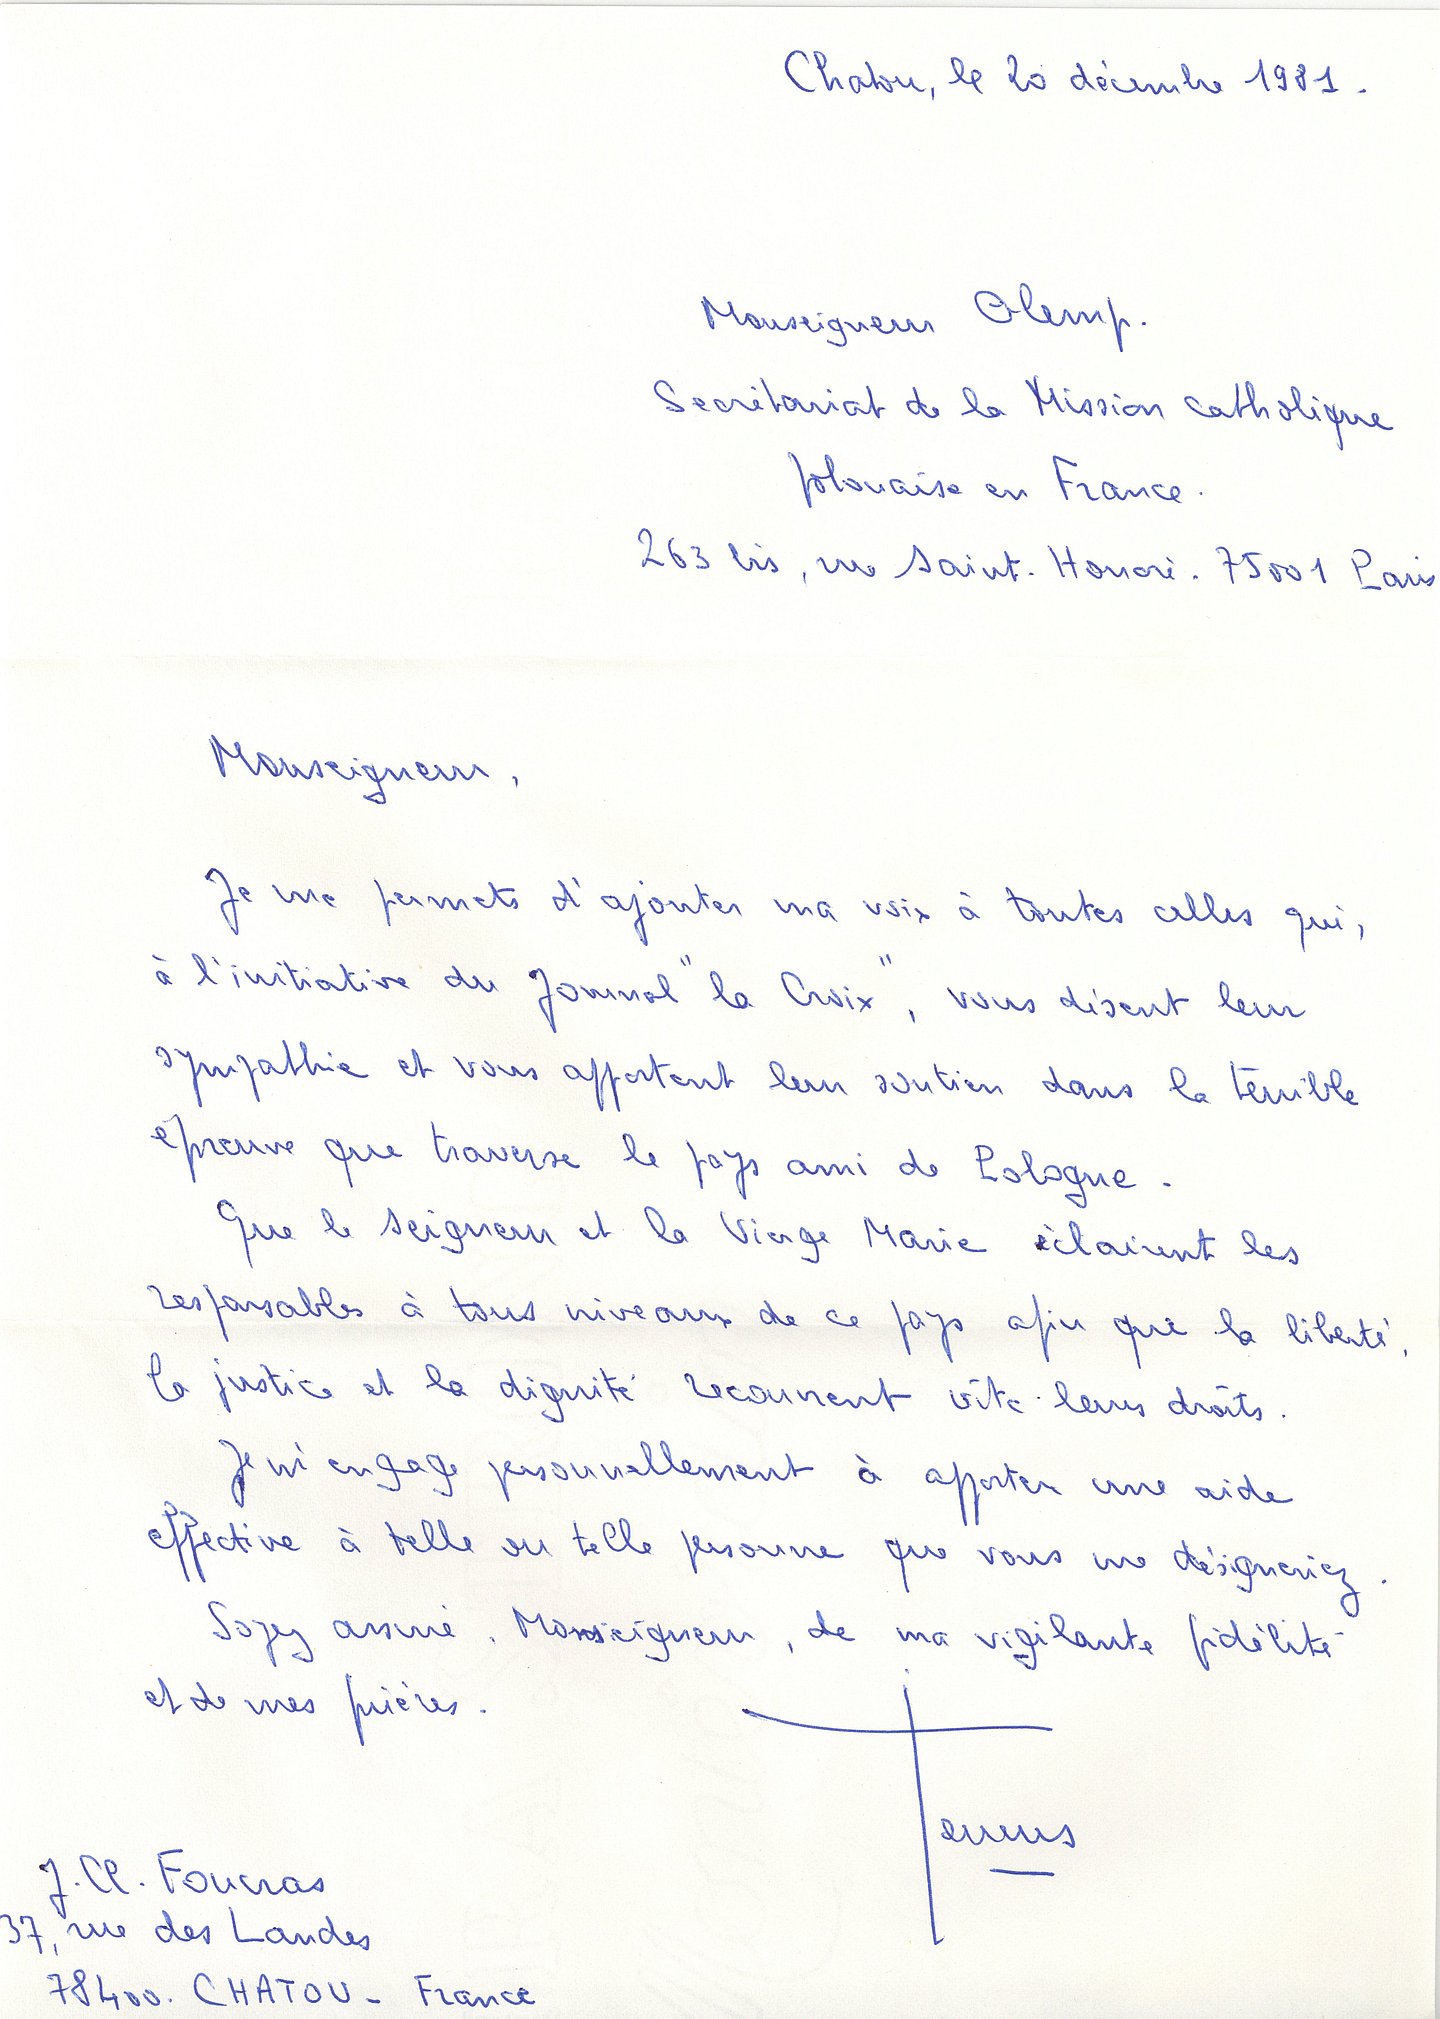 Chatou, le 20 décembre 1981.
Monseigneur Glemp.
Secrétariat de la Mission catholique
polonaise en France.
263 bis, rue Saint-Honoré. 75001 Paris
Monseigneur,
Je me permets d'ajouter ma voix à toutes celles qui,
à l'initiative du Journal "la Croix", vous disent leur
sympathie et vous apportent leur soutien dans la terrible
épreuve que traverse le pays ami de Pologne.
Que le Seigneur et la Vierge Marie éclairent les
responsables à tous niveaux de ce pays afin que la liberté,
la justice et la dignité recouvrent vite leurs droits.
Je m'engage personnellement à apporter une aide
effective à telle ou telle personne que vous me désigneriez.
Soyez assuré, Monseigneur, de ma vigilante fidélité
et de mes prières.
J. Cl. Foucras
37, rue des Landes
78400. CHATOU - France